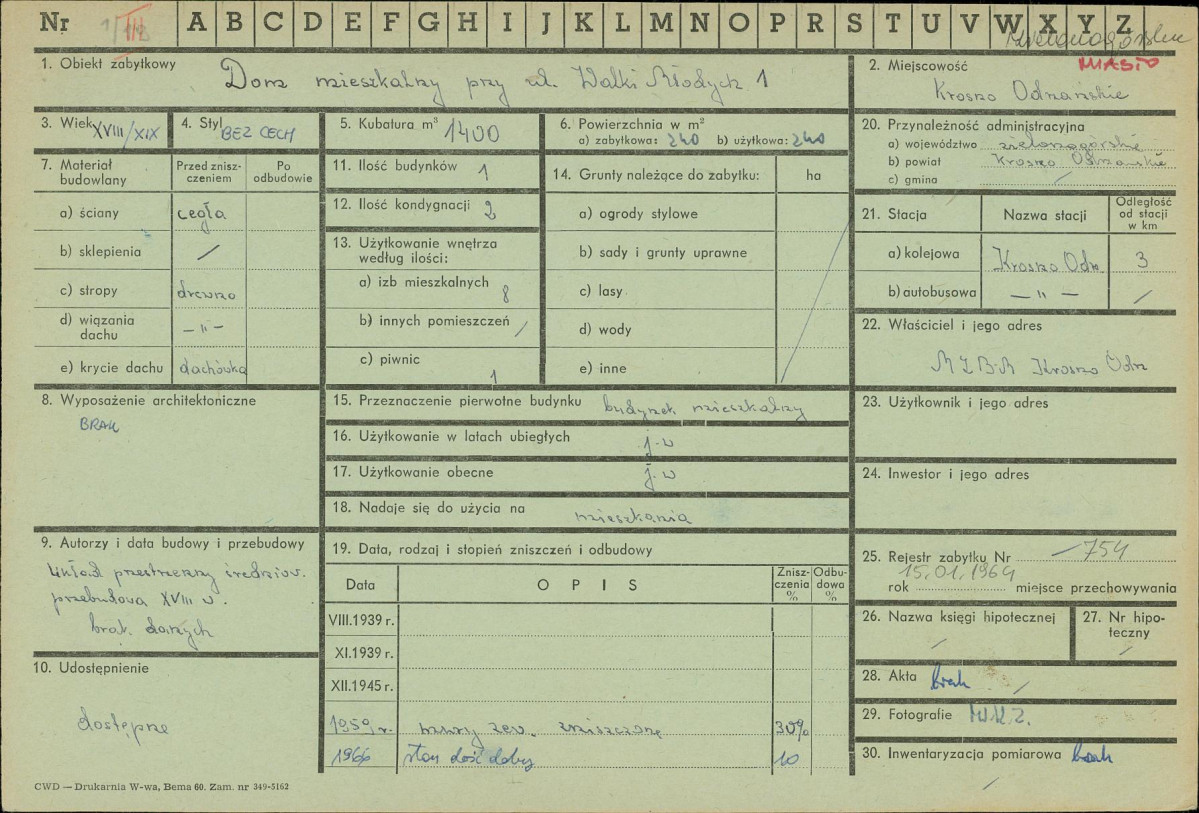 Nr III A B C D E F G H I J K L M N O P R S T U V W X Y Z
zielonogórskie
1. Obiekt zabytkowy Dom mieszkalny przy ul. Walki Młodych 1
2. Miejscowość MIASTO
Krosno Odrzańskie
3. Wiek XVIII/XIX
4. Styl BEZ CECH
5. Kubatura m³ 1400
6. Powierzchnia w m²
a) zabytkowa: 240 b) użytkowa: 240
7. Materiał budowlany
Przed zniszczeniem
Po odbudowie
a) ściany cegła
b) sklepienia /
c) stropy drewno
d) wiązania dachu — „ —
e) krycie dachu dachówka
8. Wyposażenie architektoniczne
BRAK
9. Autorzy i data budowy i przebudowy
układ przestrzenny średniow.
przebudowa XVIII w.
brak danych
10. Udostępnienie
dostępne
11. Ilość budynków 1
12. Ilość kondygnacji 2
13. Użytkowanie wnętrza
według ilości:
a) izb mieszkalnych 8
b) innych pomieszczeń /
c) piwnic 1
14. Grunty należące do zabytku: ha
a) ogrody stylowe
b) sady i grunty uprawne
c) lasy
d) wody
e) inne
15. Przeznaczenie pierwotne budynku budynek mieszkalny
16. Użytkowanie w latach ubiegłych j.w
17. Użytkowanie obecne j.w
18. Nadaje się do użycia na mieszkania
19. Data, rodzaj i stopień zniszczeń i odbudowy
Data OPIS Zniszczenia % Odbudowa %
VIII.1939 r.
XI.1939 r.
XII.1945 r.
1959 r. mury zew. zniszczone 30%
1966 stan dość dobry 10
20. Przynależność administracyjna
a) województwo zielonogórskie
b) powiat Krosno Odrzańskie
c) gmina /
21. Stacja Nazwa stacji Odległość od stacji w km
a) kolejowa Krosno Odr. 3
b) autobusowa — „ — /
22. Właściciel i jego adres
MZBM Krosno Odrz
23. Użytkownik i jego adres
24. Inwestor i jego adres
25. Rejestr zabytku Nr —754
15.01.1964
rok miejsce przechowywania
26. Nazwa księgi hipotecznej /
27. Nr hipoteczny /
28. Akta brak /
29. Fotografie W.K.Z.
30. Inwentaryzacja pomiarowa brak
/
CWD — Drukarnia W-wa, Bema 60. Zam. nr 349-5162